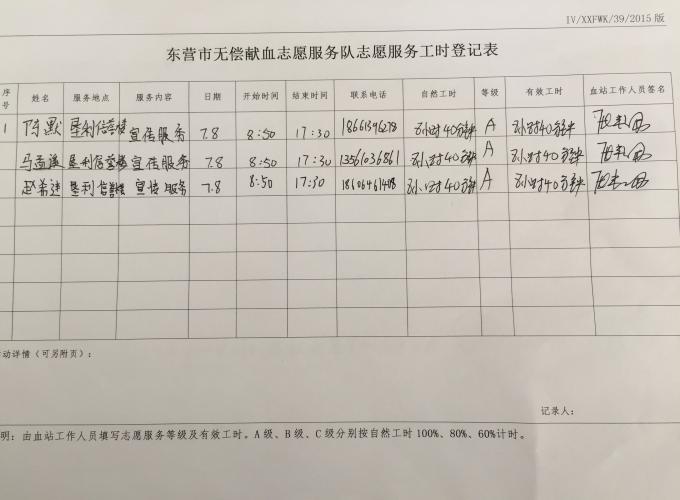 IV/XXFWK/39/2015 版
东营市无偿献血志愿服务队志愿服务工时登记表
序号 姓名 服务地点 服务内容 日期 开始时间 结束时间 联系电话 自然工时 等级 有效工时 血站工作人员签名
1 陈默 垦利信誉楼 宣传服务 7.8 8:50 17:30 18661396278 8小时40分钟 A 8小时40分钟
垦利信誉楼 宣传服务 7.8 8:50 17:30 13561036861 8小时40分钟 A 8小时40分钟
垦利信誉楼 宣传服务 7.8 8:50 17:30 18106461408 8小时40分钟 A 8小时40分钟
动详情（可另附页）：
记录人：
明：由血站工作人员填写志愿服务等级及有效工时。A 级、B 级、C 级分别按自然工时 100%、80%、60%计时。